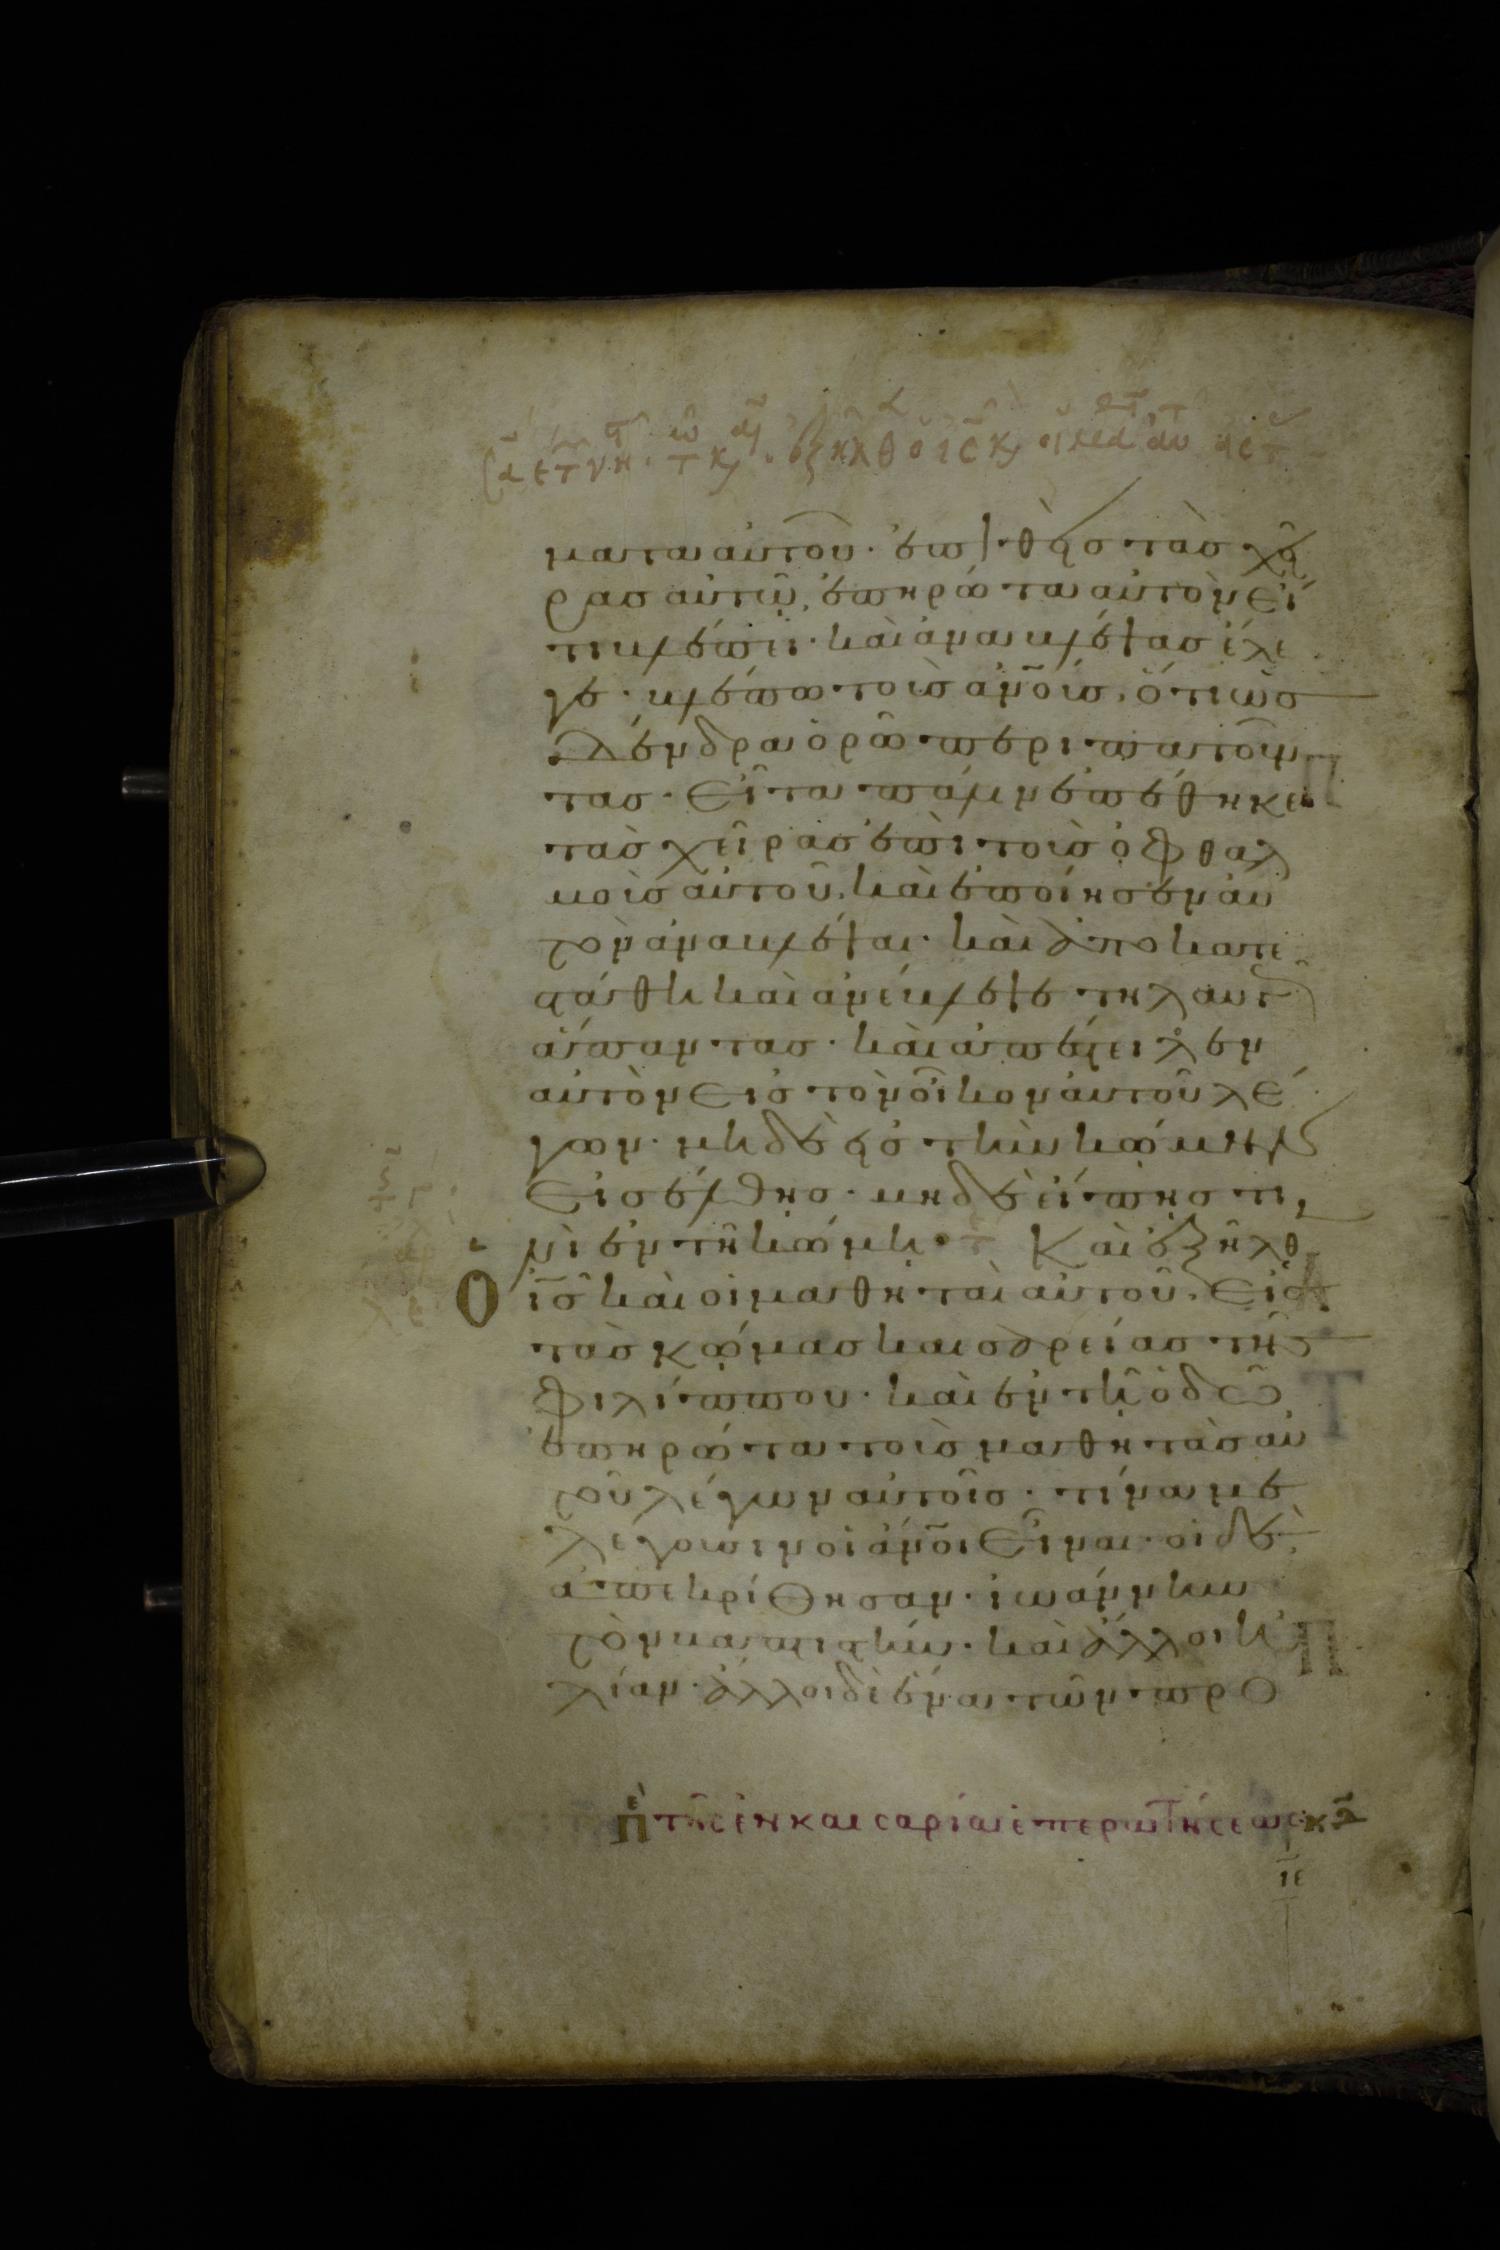 ματα αὐτοῦ. ἐπιθεὶς τὰς χεῖ
ρας αὐτῷ, ἐπηρώτα αὐτὸν εἴ
τι βλέπει. καὶ ἀναβλέψας ἔλε
γε. βλέπω τοὺς ἀν̅ους, ὅτι ὡς
δένδρα ὁρῶ περιπατοῦν
τας. εἶτα πάλιν ἐπέθηκε
τὰς χεῖρας ἐπὶ τοὺς ὀφθαλ
μοὺς αὐτοῦ, καὶ ἐποίησεν αὐ
τὸν ἀναβλέψαι. καὶ ἀποκατε
στάθη καὶ ἀνέβλεψε τηλαυγῶς
ἅπαντας. καὶ ἀπέστειλεν
αὐτὸν εἰς τὸν οἶκον αὐτοῦ λέ
γων. μηδὲ εἰς τὴν κώμην
εἰσέλθης. μηδὲ εἴπης τι
νὶ ἐν τῆ κώμη. Καὶ ἐξῆλθεν
Ὁ ι̅ς̅ καὶ οἱ μαθηταὶ αὐτοῦ, εἰς
τὰς κώμας καισαρείας τῆς
φιλίππου. καὶ ἐν τῆ ὁδῶ
ἐπηρώτα τοὺς μαθητὰς αὐ
τοῦ λέγων αὐτοῖς. τίνα με
λέγουσιν οἱ ἄν̅οι εἶναι. οἱ δὲ
ἀπεκρίθησαν. ἰωάννην
τὸν βαπτιστήν. καὶ ἄλλοι ἠ
λίαν. ἄλλοι δὲ ἕνα τῶν προ
πε τῆς ἐν καισαρία ἐπερωτήσεως κδ
ιε